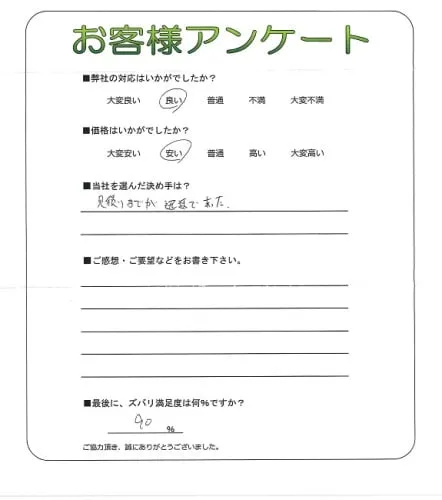 お客様アンケート
■弊社の対応はいかがでしたか?
大変良い 良い 普通 不満 大変不満
■価格はいかがでしたか?
大変安い 安い 普通 高い 大変高い
■当社を選んだ決め手は?
見積りまでが
■ご感想・ご要望などをお書き下さい。
■最後に、ズバリ満足度は何%ですか?
90 %
ご協力頂き、誠にありがとうございました。